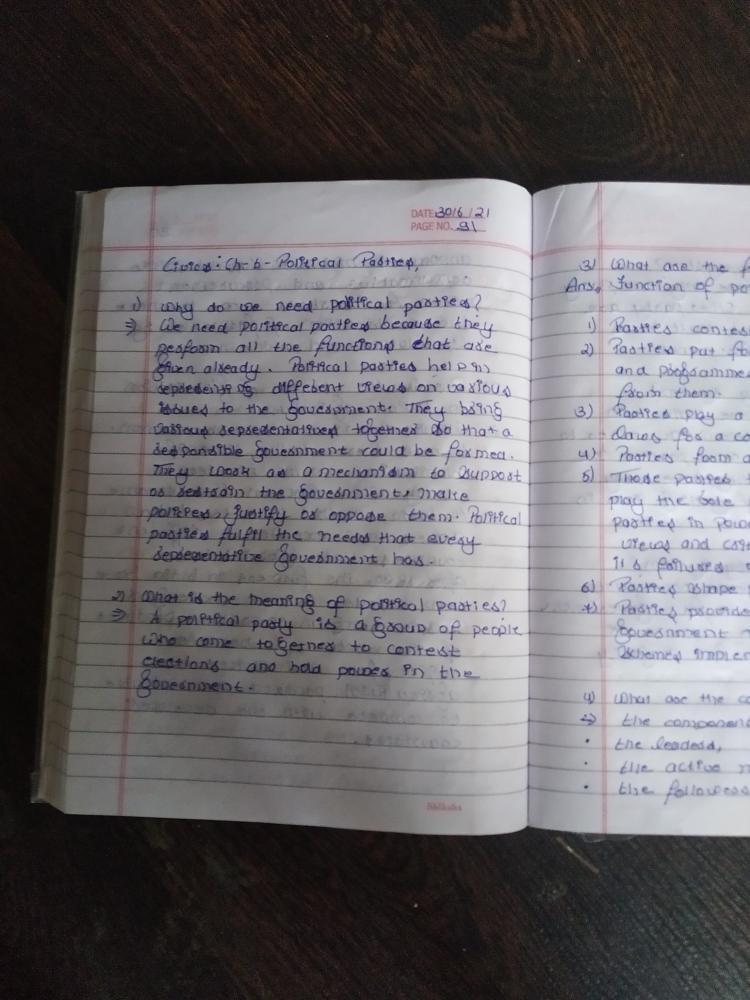 DATE 30/6/21
PAGE NO. 91
Civics: Ch-6- Political Parties,
1) Why do we need political parties?
⇒ We need political parties because they
perform all the functions that are
given already. Political parties help in
representing different views on various
issues to the government. They bring
various representatives together so that a
responsible government could be formed.
They work as a mechanism to support
or restrain the government, make
policies, justify or oppose them. Political
parties fulfil the needs that every
representative government has.
2) What is the meaning of political parties?
⇒ A political party is a group of people
who come together to contest
elections and hold power in the
government.
3) What are the f
Ans. Function of pa
1) Parties contes
2) Parties put fo
and programme
from them.
3) Parties play a
laws for a co
4) Parties form a
5) Those parties t
play the role
parties in pow
views and crit
it's failures
6) Parties shape
7) Parties provide
government
schemes implem
4) What are the co
⇒ the component
• the leaders,
• the active m
• the followers